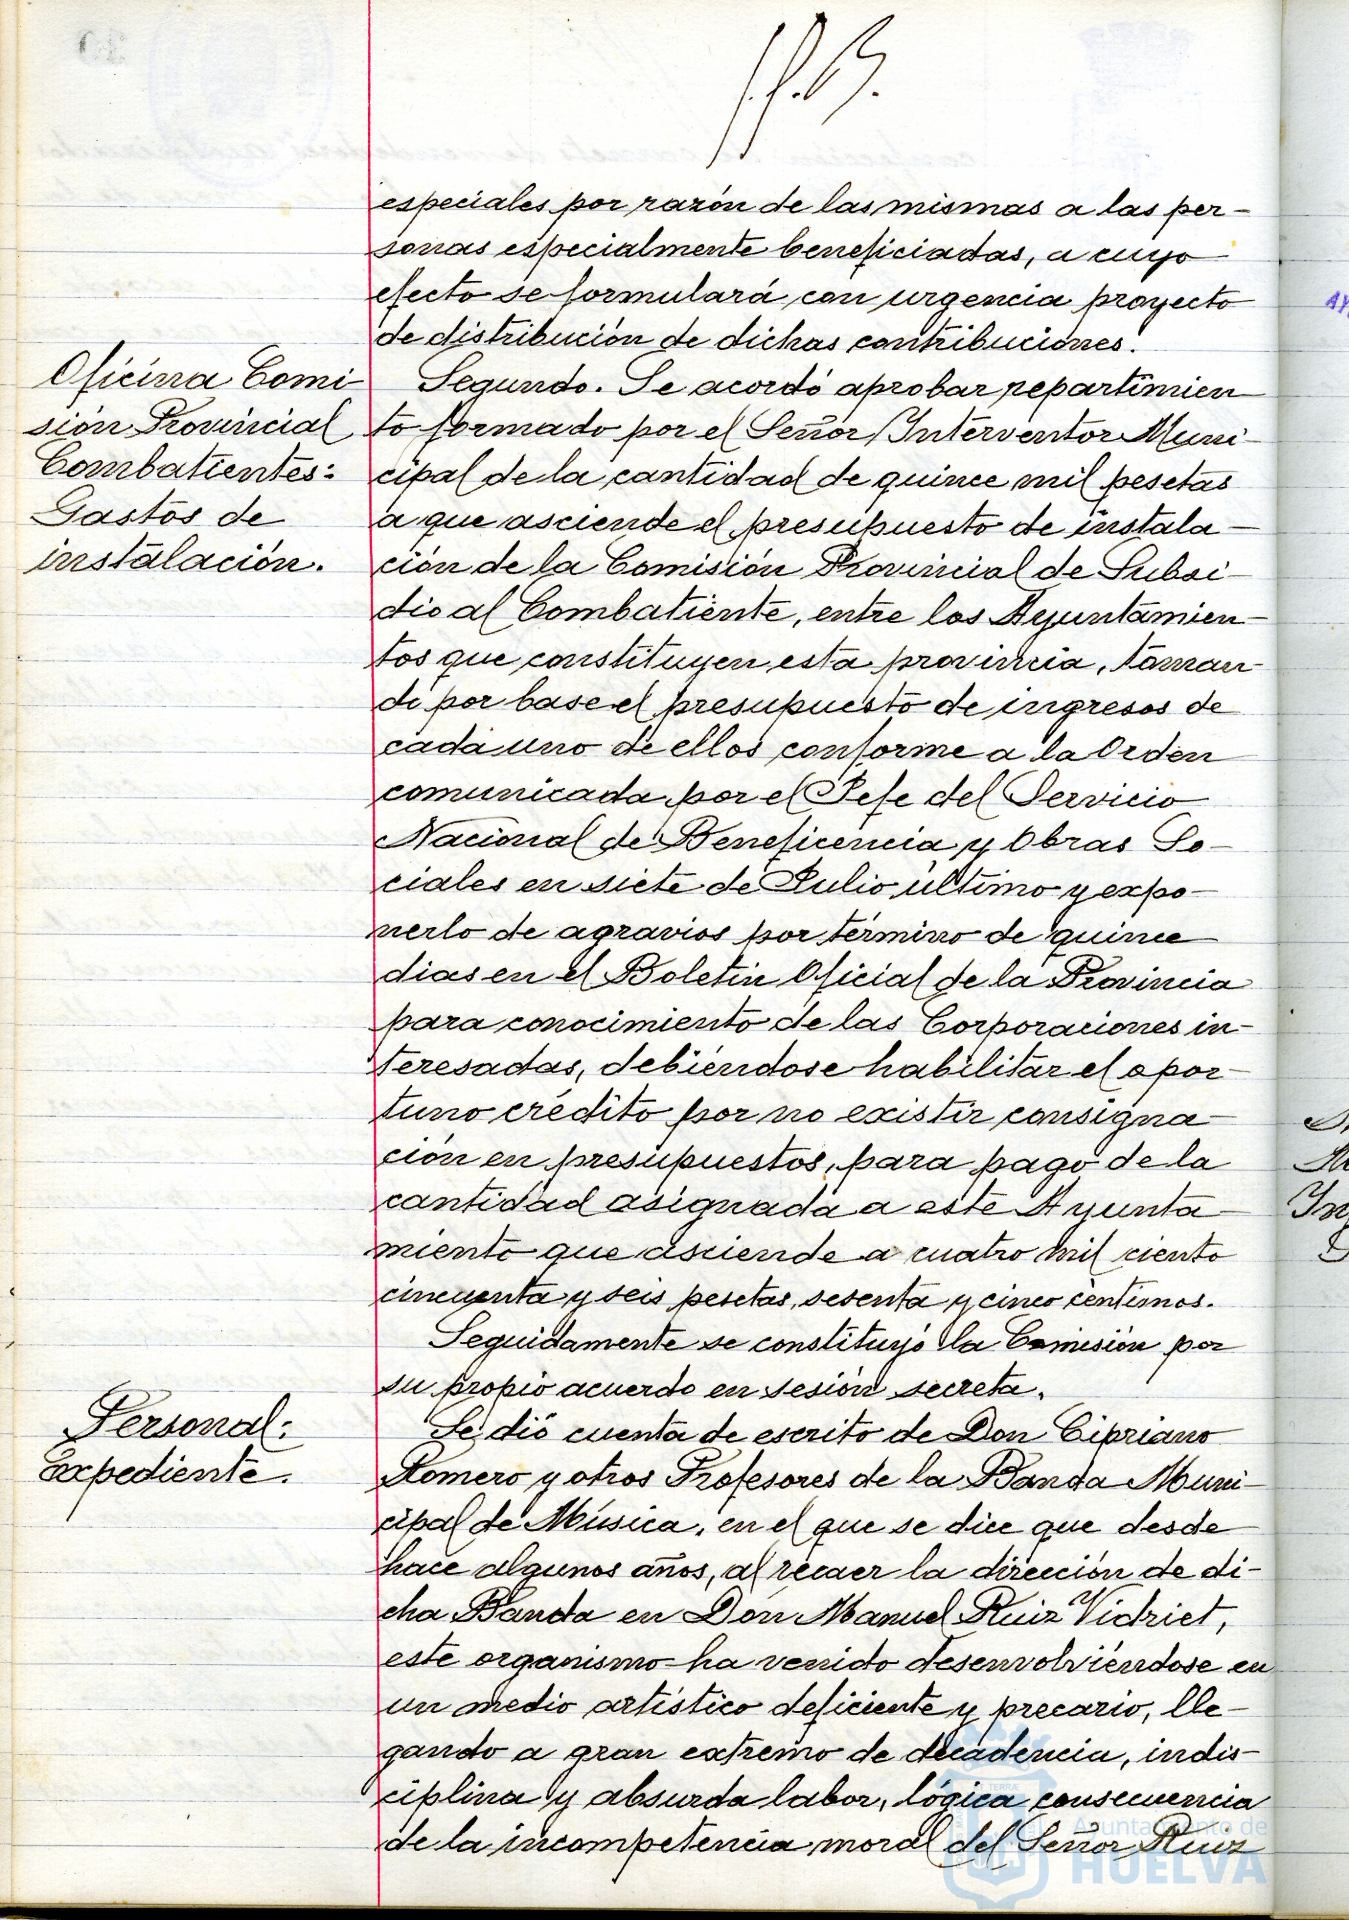 especiales por razón de las mismas a las per-
sonas especialmente beneficiadas, a cuyo
efecto se formulará con urgencia proyecto
de distribución de dichas contribuciones.
Oficina Comi
sión Provincial
Combatientes:
Gastos de
instalación.
Segundo. Se acordó aprobar repartimien
to formado por el Señor Interventor Muni-
cipal de la cantidad de quince mil pesetas
a que asciende el presupuesto de instala-
ción de la Comisión Provincial de Subsi-
dio al Combatiente, entre los Ayuntamien-
tos que constituyen esta provincia, toman-
do por base el presupuesto de ingresos de
cada uno de ellos conforme a la Orden
comunicada por el Jefe del Servicio
Nacional de Beneficencia y Obras So-
ciales en siete de Julio último y expo-
nerlo de agravios por término de quince
dias en el Boletin Oficial de la Provincia
para conocimiento de las Corporaciones in-
teresadas, debiéndose habilitar el opor-
tuno crédito por no existir consigna-
ción en presupuestos, para pago de la
cantidad asignada a este Ayunta-
miento que asciende a cuatro mil ciento
cincuenta y seis pesetas, sesenta y cinco céntimos.
Seguidamente se constituyó la Comisión por
su propio acuerdo en sesión secreta.
Personal:
Expediente.
Se dió cuenta de escrito de Don Cipriano
Romero y otros Profesores de la Banda Muni-
cipal de Música, en el que se dice que desde
hace algunos años, al recaer la dirección de di-
cha Banda en Don Manuel Ruiz Vidriet,
este organismo ha venido desenvolviéndose en
un medio artístico deficiente y precario, lle-
gando a gran extremo de decadencia, indis-
ciplina y absurda labor, lógica consecuencia
de la incompetencia moral del Señor Ruiz
Ayuntamiento de
HUELVA